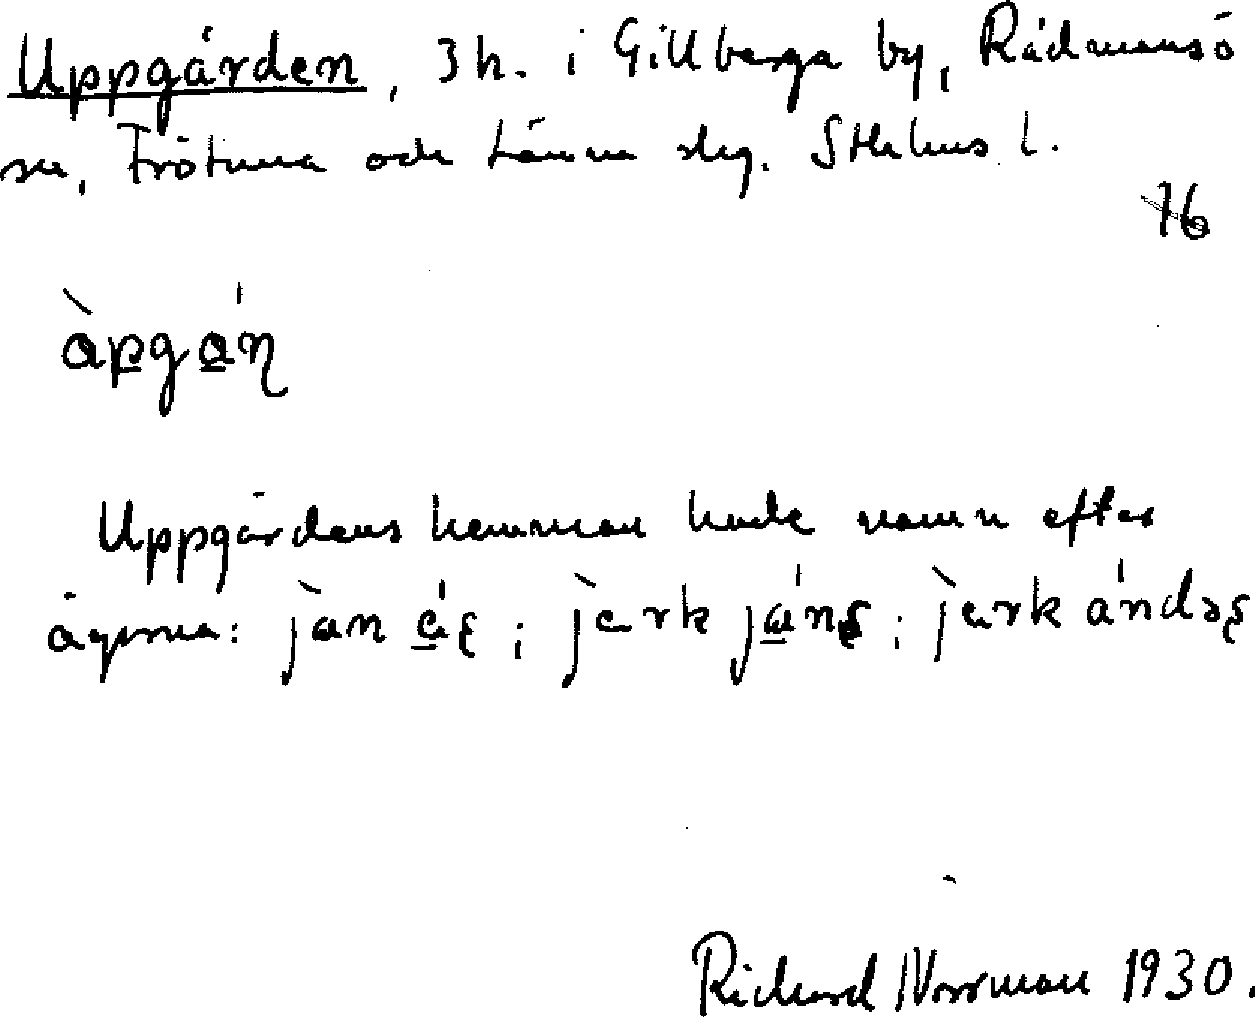 Uppgården, 3 h. i Gillberga by, Rådmansö
sn, Frötuna och Länna skg. Sthlms l.
16
àpgáɳ
Uppgårdens hemman hade namn efter
ägarna: jàn áʂ; jàrk jánʂ; jàrk ándəʂ
Richard Norrman 1930.